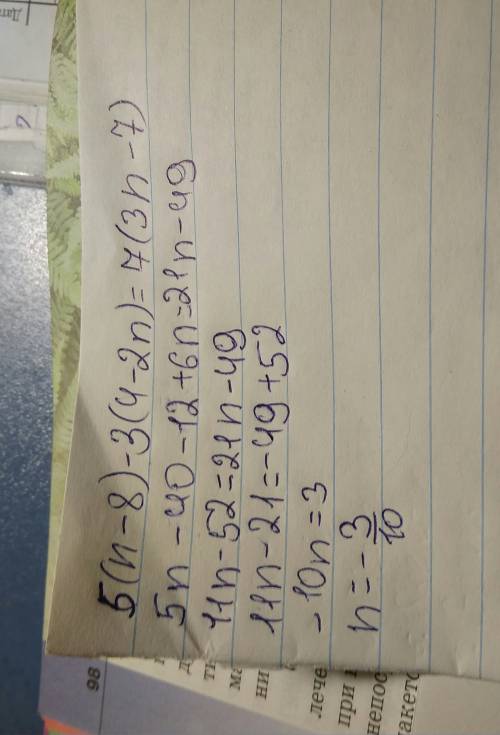 5(n-8)-3(4-2n)=7(3n-7)
5n-40-12+6n=21n-49
11n-52=21n-49
11n-21=-49+52
-10n=3
n=-3/10
98
лече
при
непос